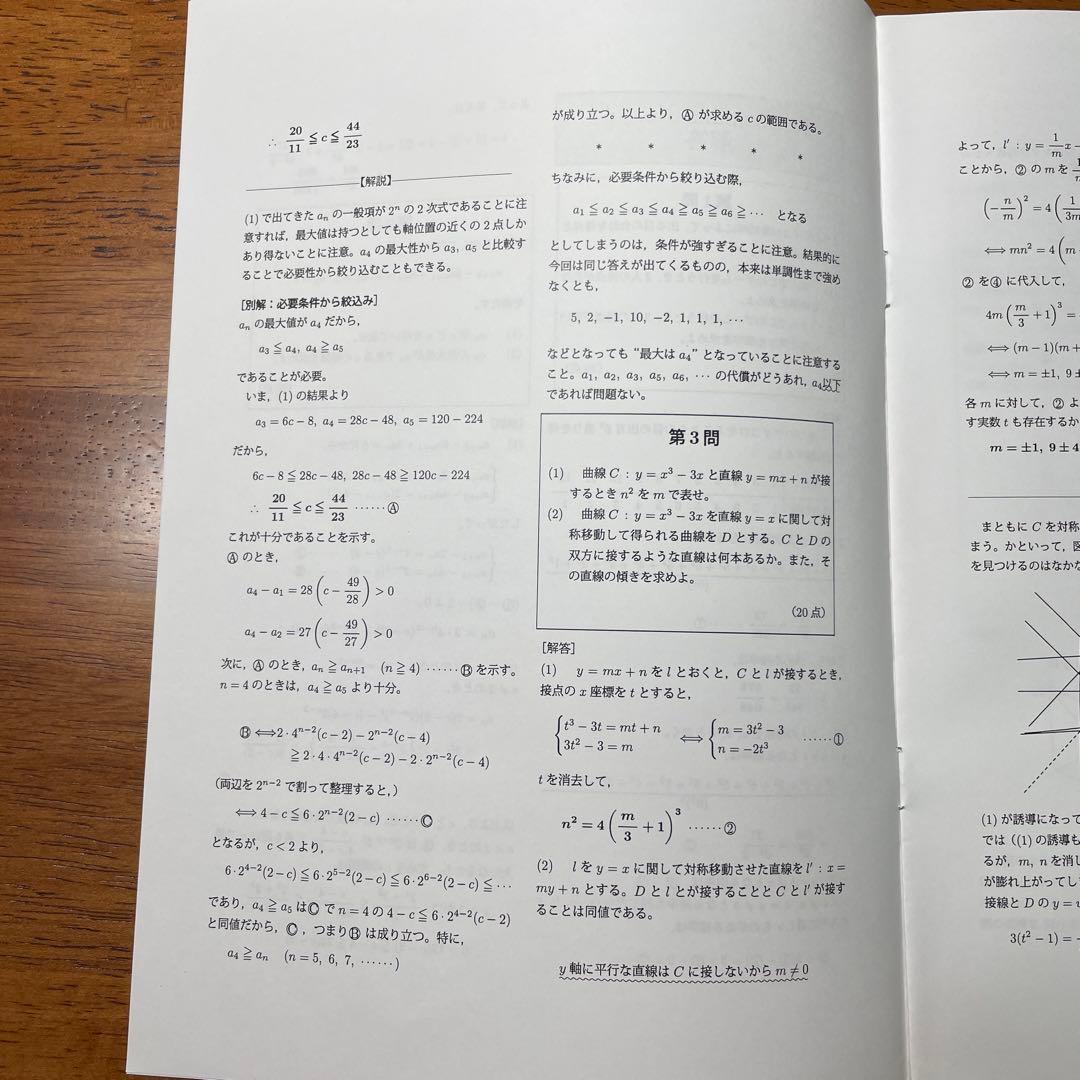 ∴ 20/11 ≦ c ≦ 44/23
【解説】
(1) で出てきた aₙ の一般項が 2ⁿ の 2 次式であることに注
意すれば，最大値は持つとしても軸位置の近くの 2 点しか
あり得ないことに注意。a₄ の最大性から a₃, a₅ と比較す
ることで必要性から絞り込むこともできる。
[別解：必要条件から絞込み]
aₙ の最大値が a₄ だから，
a₃ ≦ a₄, a₄ ≧ a₅
であることが必要。
いま，(1) の結果より
a₃ = 6c − 8, a₄ = 28c − 48, a₅ = 120 − 224
だから，
6c − 8 ≦ 28c − 48, 28c − 48 ≧ 120c − 224
∴ 20/11 ≦ c ≦ 44/23 ……Ⓐ
これが十分であることを示す。
Ⓐ のとき，
a₄ − a₁ = 28 (c − 49/28) > 0
a₄ − a₂ = 27 (c − 49/27) > 0
次に，Ⓐ のとき，aₙ ≧ aₙ₊₁ (n ≧ 4) ……Ⓑ を示す。
n = 4 のときは，a₄ ≧ a₅ より十分。
Ⓑ ⟺ 2・4ⁿ⁻²(c − 2) − 2ⁿ⁻²(c − 4)
≧ 2・4・4ⁿ⁻²(c − 2) − 2・2ⁿ⁻²(c − 4)
(両辺を 2ⁿ⁻² で割って整理すると，)
⟺ 4 − c ≦ 6・2ⁿ⁻²(2 − c) ……Ⓒ
となるが，c < 2 より，
6・2⁴⁻²(2 − c) ≦ 6・2⁵⁻²(2 − c) ≦ 6・2⁶⁻²(2 − c) ≦ …
であり，a₄ ≧ a₅ はⒸ で n = 4 の 4 − c ≦ 6・2⁴⁻²(c − 2)
と同値だから，Ⓒ，つまりⒷ は成り立つ。特に，
a₄ ≧ aₙ (n = 5, 6, 7, ……)
が成り立つ。以上より，Ⓐ が求める c の範囲である。
* * * * *
ちなみに，必要条件から絞り込む際，
a₁ ≦ a₂ ≦ a₃ ≦ a₄ ≧ a₅ ≧ a₆ ≧ … となる
としてしまうのは，条件が強すぎることに注意。結果的に
今回は同じ答えが出てくるものの，本来は単調性まで強め
なくとも，
5, 2, −1, 10, −2, 1, 1, 1, …
などとなっても “最大は a₄” となっていることに注意する
こと。a₁, a₂, a₃, a₅, a₆, … の代償がどうあれ，a₄以下
であれば問題ない。
第 3 問
(1) 曲線 C : y = x³ − 3x と直線 y = mx + n が接
するとき n² を m で表せ。
(2) 曲線 C : y = x³ − 3x を直線 y = x に関して対
称移動して得られる曲線を D とする。C と D の
双方に接するような直線は何本あるか。また，そ
の直線の傾きを求めよ。
(20 点)
[解答]
(1) y = mx + n を l とおくと，C と l が接するとき，
接点の x 座標を t とすると，
{t³ − 3t = mt + n ⟺ {m = 3t² − 3
3t² − 3 = m n = −2t³ ……①
t を消去して，
n² = 4 (m/3 + 1)³ ……②
(2) l を y = x に関して対称移動させた直線を l′ : x =
my + n とする。D と l とが接することと C と l′ が接す
ることは同値である。
y 軸に平行な直線は C に接しないから m ≠ 0
よって，l′ : y = 1/m x −
ことから，② の m を
(−n/m)² = 4 (1/3m
⟺ mn² = 4 (m
② を④ に代入して，
4m (m/3 + 1)³ =
⟺ (m − 1)(m +
⟺ m = ±1, 9 ±
各 m に対して，② よ
す実数 t も存在するか
m = ±1, 9 ± 4
まともに C を対称
まう。かといって，図
を見つけるのはなかな
(1) が誘導になって
では ((1) の誘導も
るが，m, n を消し
が膨れ上がってし
接線と D の y =
3(t² − 1) = −